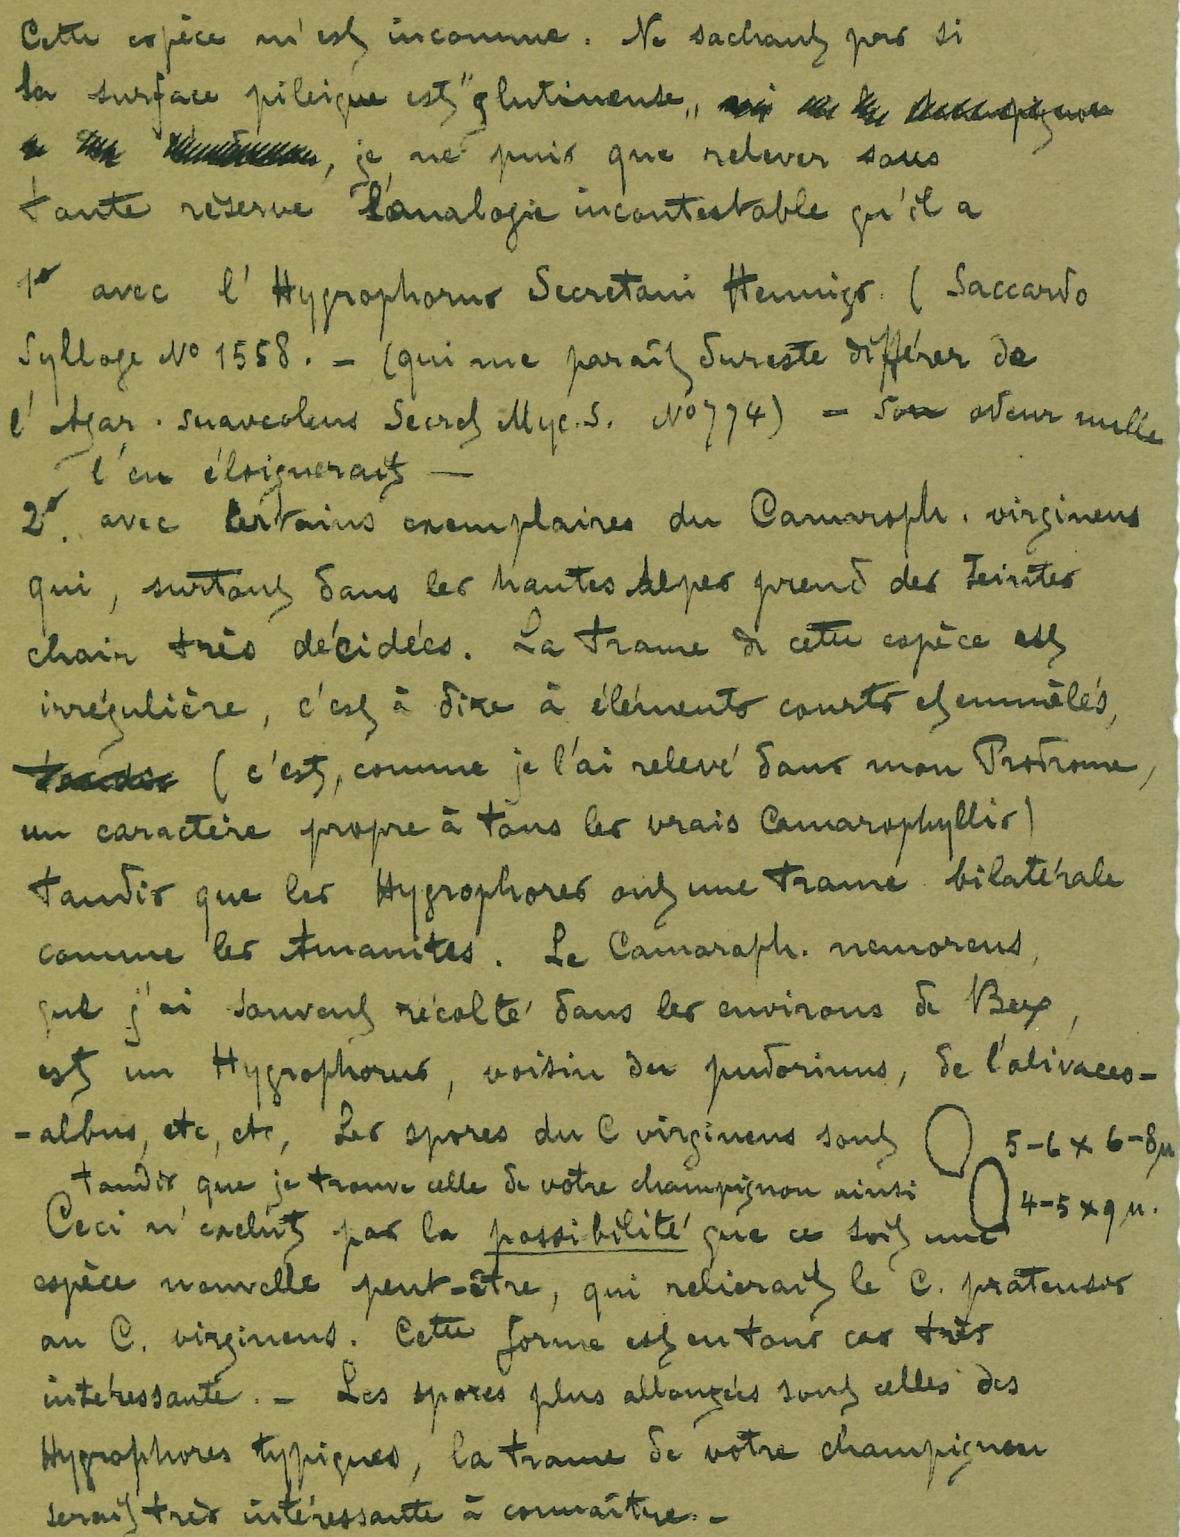 Cette espèce m'est inconnue. Ne sachant pas si
la surface piléique est "glutineuse„
, je ne puis que relever sous
toute réserve l'analogie incontestable qu'il a
1° avec l'Hygrophorus Secretani Hennigs. (Saccardo
Sylloge No 1558. – (qui me paraît dureste différer de
l'Agar. suaveolens Secret Myc. S. No 774) – Son odeur nulle
l'en éloignerait —
2°. avec certains exemplaires du Camaroph. virgineus
qui, surtout dans les hautes Alpes prend des teintes
chair très décidées. La trame de cette espèce est
irrégulière, c'est à dire à éléments courts et emmêlés,
(c'est, comme je l'ai relevé dans mon Prodrome,
un caractère propre à tous les vrais Camarophyllis)
tandis que les Hygrophores ont une trame bilatérale
comme les Amanites. Le Camaroph. nemoreus,
que j'ai souvent récolté dans les environs de Bex,
est un Hygrophorus, voisin du pudorinus, de l'olivaceo-
-albus, etc, etc, Les spores du C virgineus sont 5-6 x 6-8 µ
tandis que je trouve celle de votre champignon ainsi 4-5 x 9 µ.
Ceci n'exclut pas la possibilité que ce soit une
espèce nouvelle peut-être, qui relierait le C. pratensis
au C. virgineus. Cette forme est en tous cas très
intéressante. – Les spores plus allongées sont celles des
Hygrophores typiques, la trame de votre champignon
serait très intéressante à connaître. –